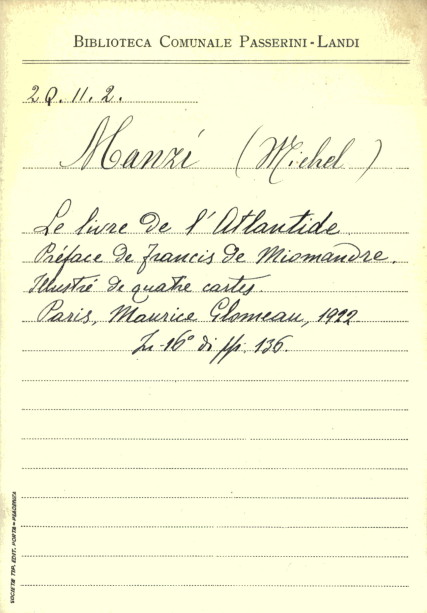 BIBLIOTECA COMUNALE PASSERINI-LANDI
2Q.11.2.
Manzi (Michel)
Le livre de l'Atlantide
Préface de Francis de Miomandre.
Illustré de quatre cartes.
Paris, Maurice Glomeau, 1922
In-16° di pp. 136.
SOCIETÀ TIP. EDIT. PORTA - PIACENZA